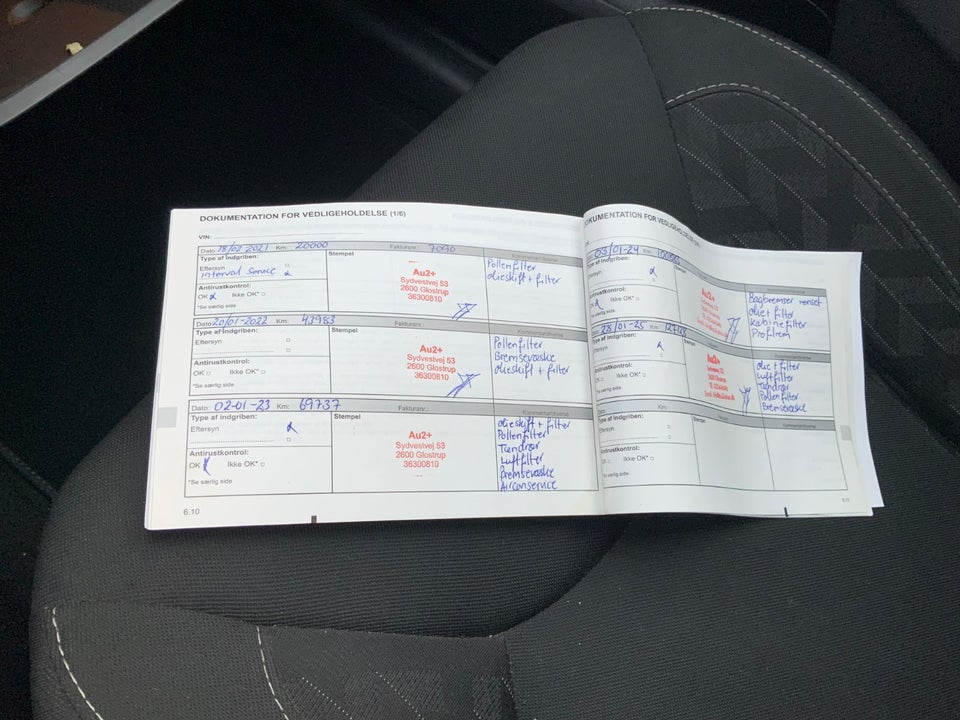 DOKUMENTATION FOR VEDLIGEHOLDELSE (1/6)
VIN:
Dato: 18/02-2021 Km: 20000 Fakturanr: 7090
Type af indgriben: Stempel
Eftersyn
interval service
Antirustkontrol:
OK Ikke OK*
*Se særlig side
Au2+
Sydvestvej 53
2600 Glostrup
36300810
Pollenfilter
olieskift + filter
Dato: 20/01-2022 Km: 43983 Fakturanr:
Type af indgriben: Stempel
Eftersyn
Antirustkontrol:
OK Ikke OK*
*Se særlig side
Au2+
Sydvestvej 53
2600 Glostrup
36300810
Pollenfilter
Bremsevæske
olieskift + filter
Dato: 02-01-23 Km: 69737 Fakturanr:
Type af indgriben: Stempel
Eftersyn
Antirustkontrol:
OK Ikke OK*
*Se særlig side
Au2+
Sydvestvej 53
2600 Glostrup
36300810
olieskift + filter
Pollenfilter
Tændrør
Luftfilter
Bremsevæske
Airconservice
6.10
DOKUMENTATION FOR VEDLIGEHOLDELSE
03/01-24
Type af indgriben: Stempel
Eftersyn
Antirustkontrol:
Ikke OK*
*Se særlig side
Au2+
Bagbremser renset
olie + filter
kabinefilter
28/01-25 Km:
Type af indgriben:
Eftersyn
Antirustkontrol:
OK Ikke OK*
*Se særlig side
Au2+
olie + filter
Luftfilter
Tændrør
Pollenfilter
Bremsevæske
Km:
Type af indgriben:
Eftersyn
Antirustkontrol:
OK Ikke OK*
*Se særlig side